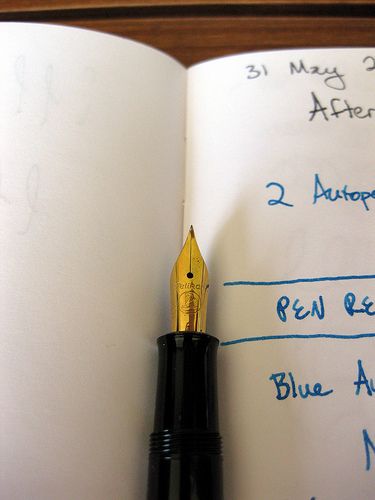 31 May 2
After
2 Autopo
PEN RE
Blue Au
N
Pelikan